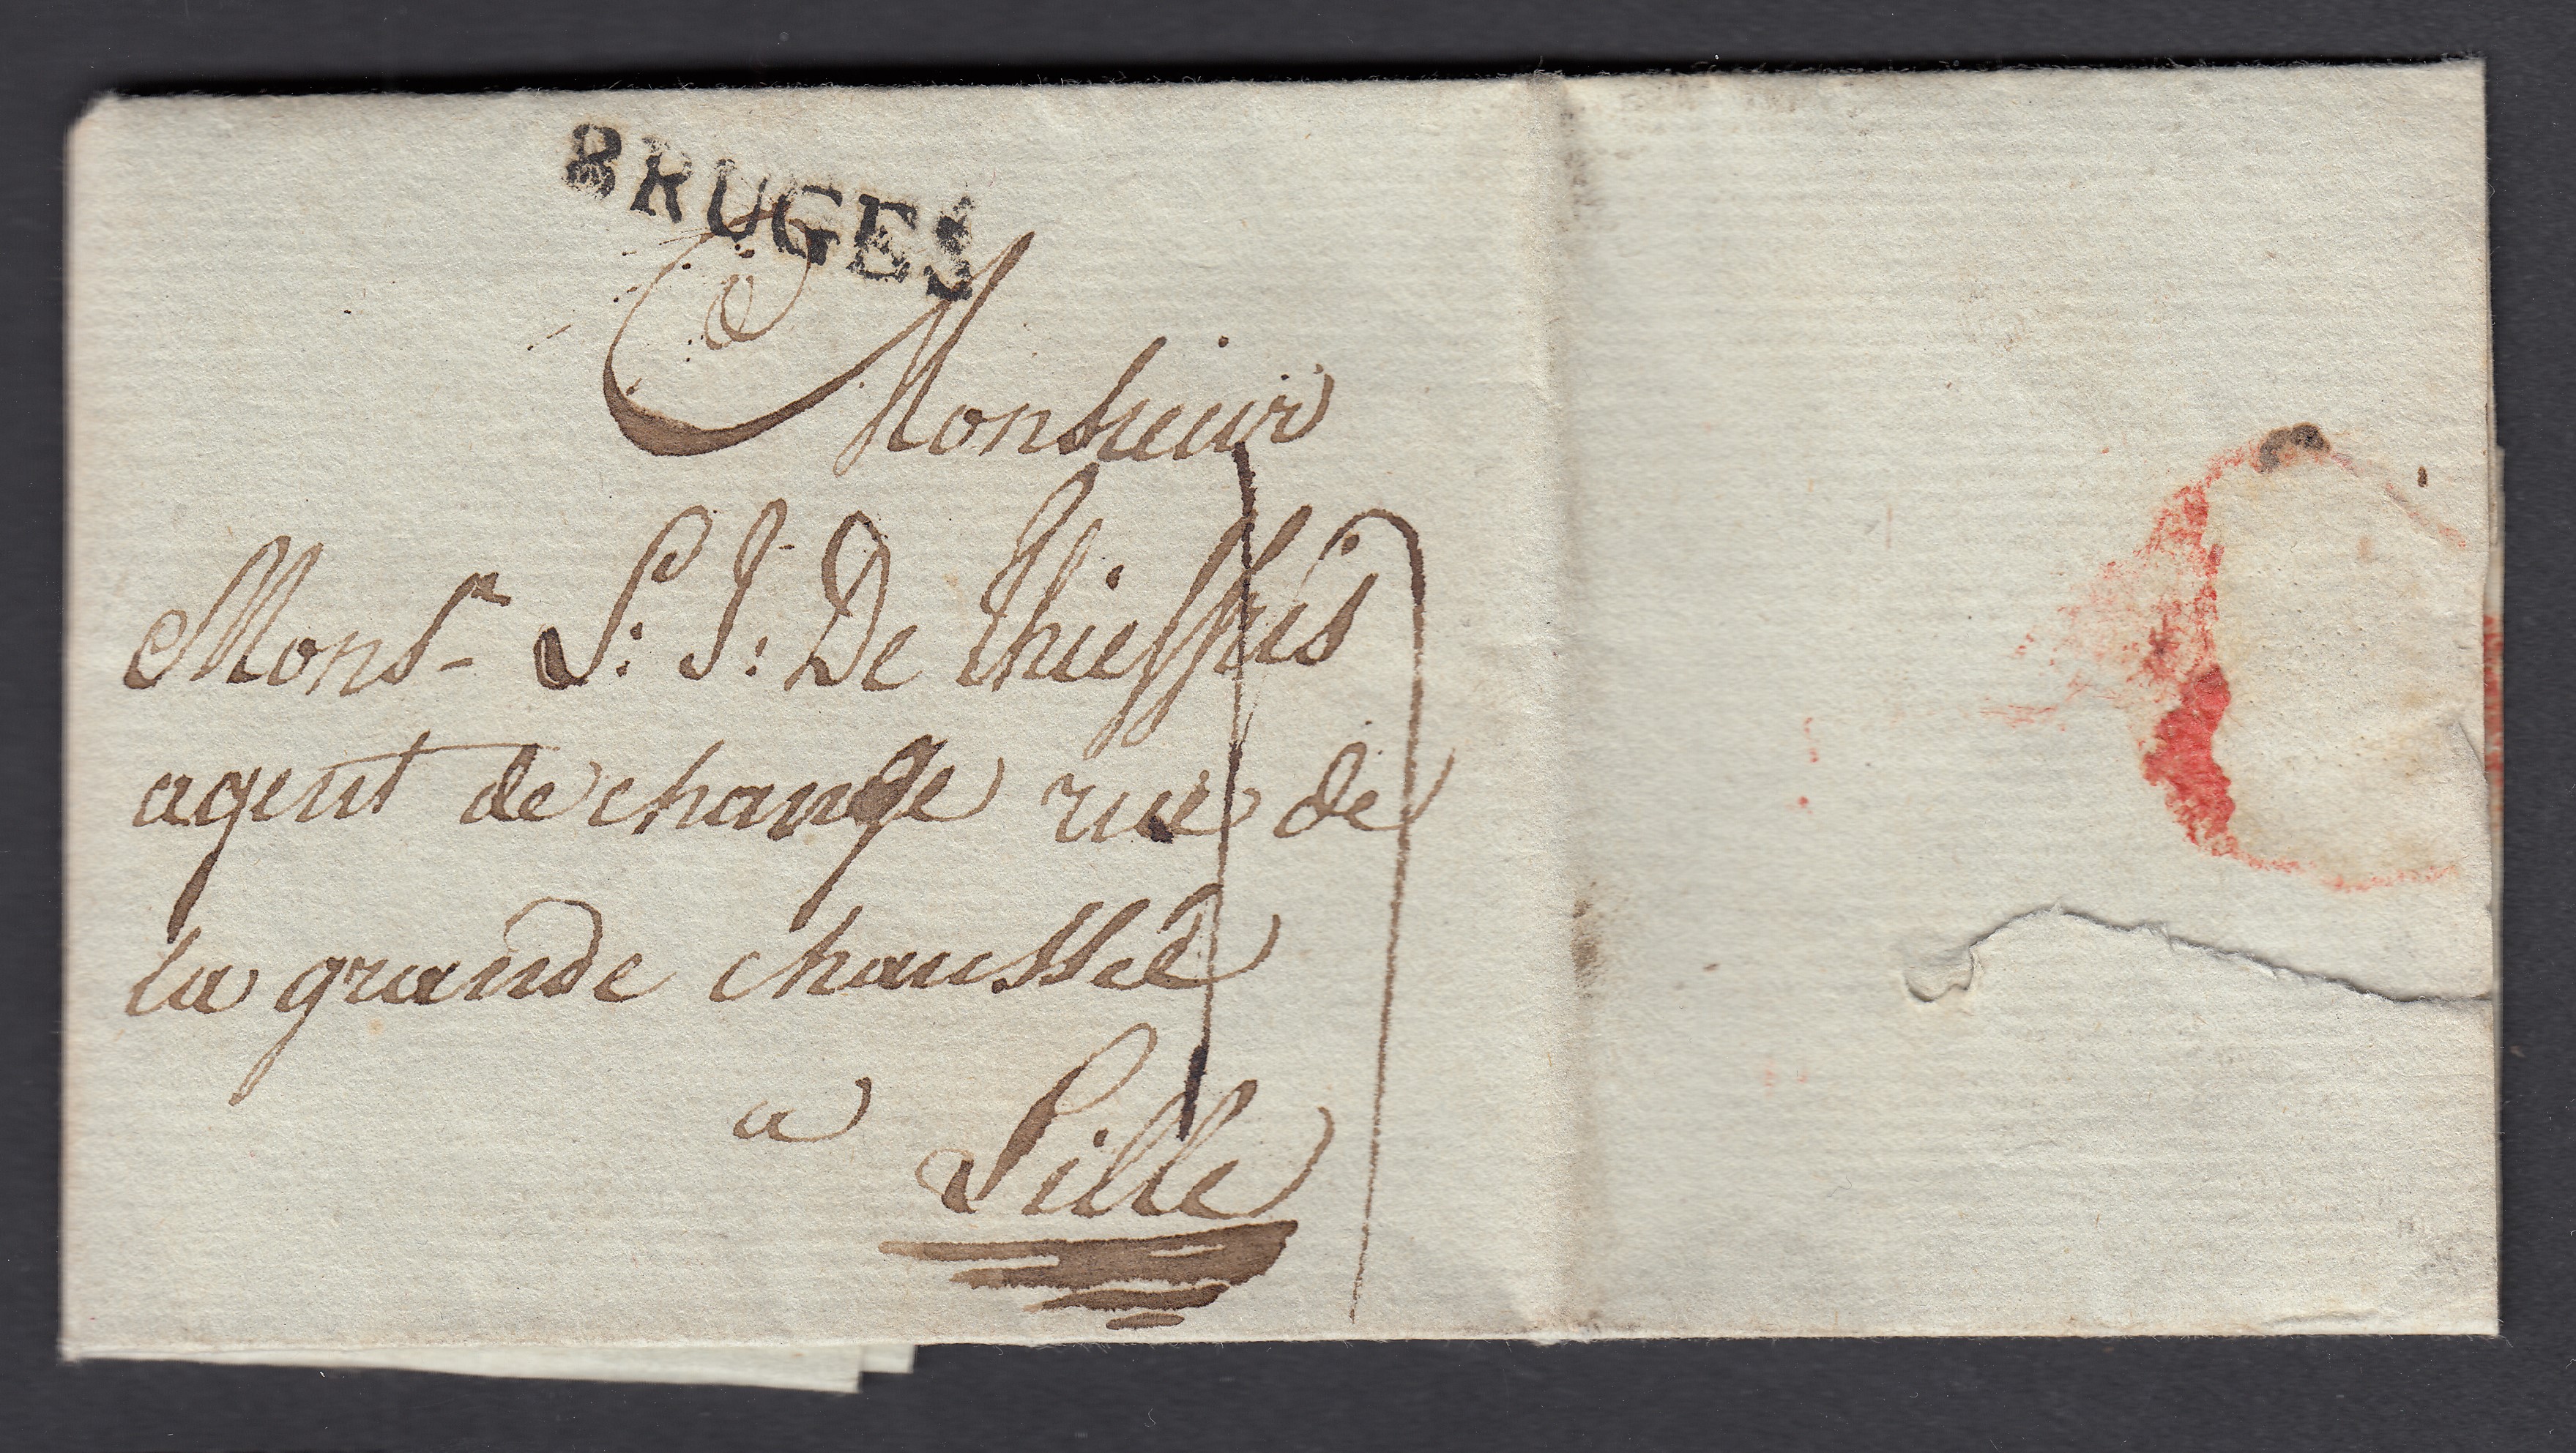 BRUGES
Monsieur
Monsr S: J: De Thieffries
agent de change rue de
la grande chaussee
a
Lille